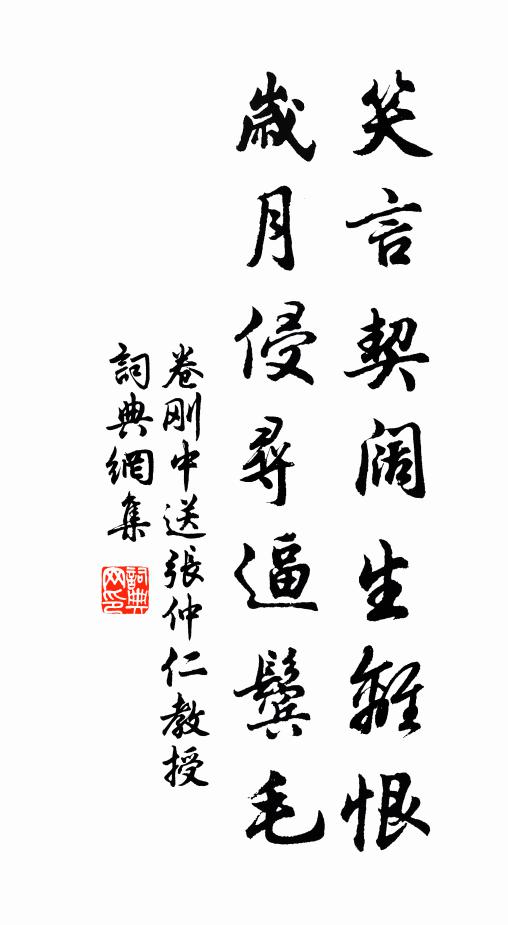 笑言契阔生離恨
歲月侵尋逼鬓毛
卷刚中送張仲仁教授
詞典網集
詞典网印